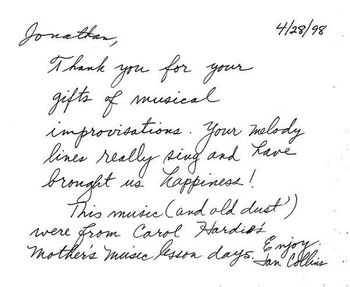 4/28/98
Jonathan,
Thank you for your
gifts of musical
improvisations. Your melody
lines really sing and have
brought us happiness!
This music (and old dust')
were from Carol Hardies
Mother's music lesson days. Enjoy.
Jan Collins